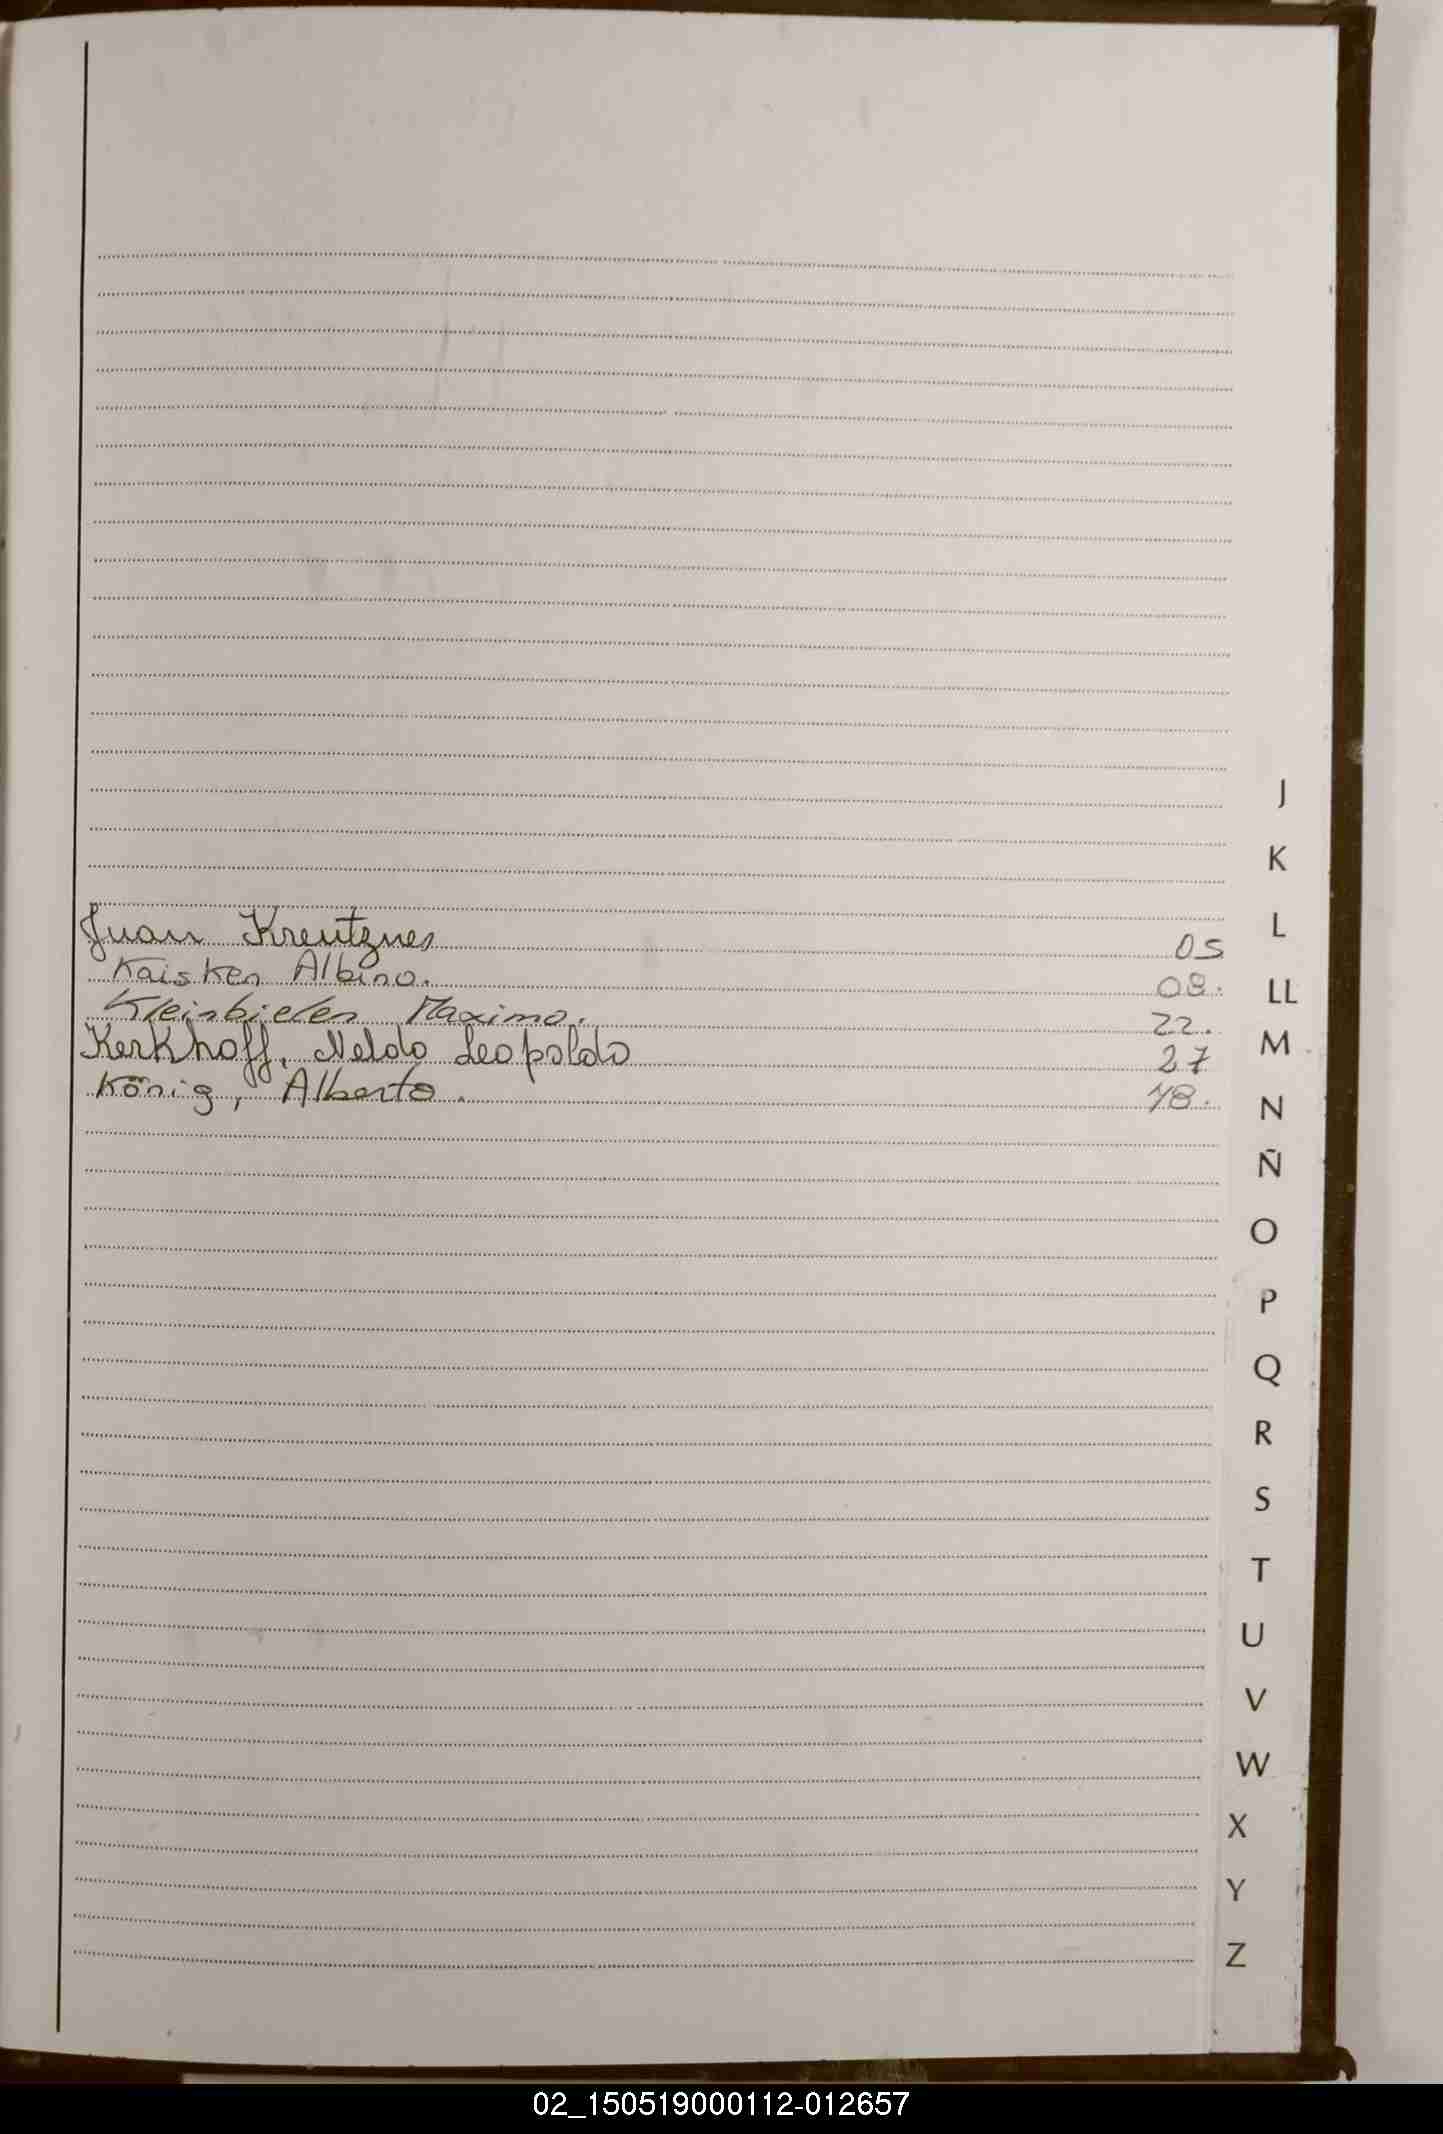 J
K
L
Juan Kreutzner 05
Kaisken Albino. 08.
LL
Kleinbielen Maximo. 22.
M
Kerkhoff, Neldo Leopoldo 27
König, Alberto. 18.
N
Ñ
O
P
Q
R
S
T
U
V
W
X
Y
Z
02_150519000112-012657